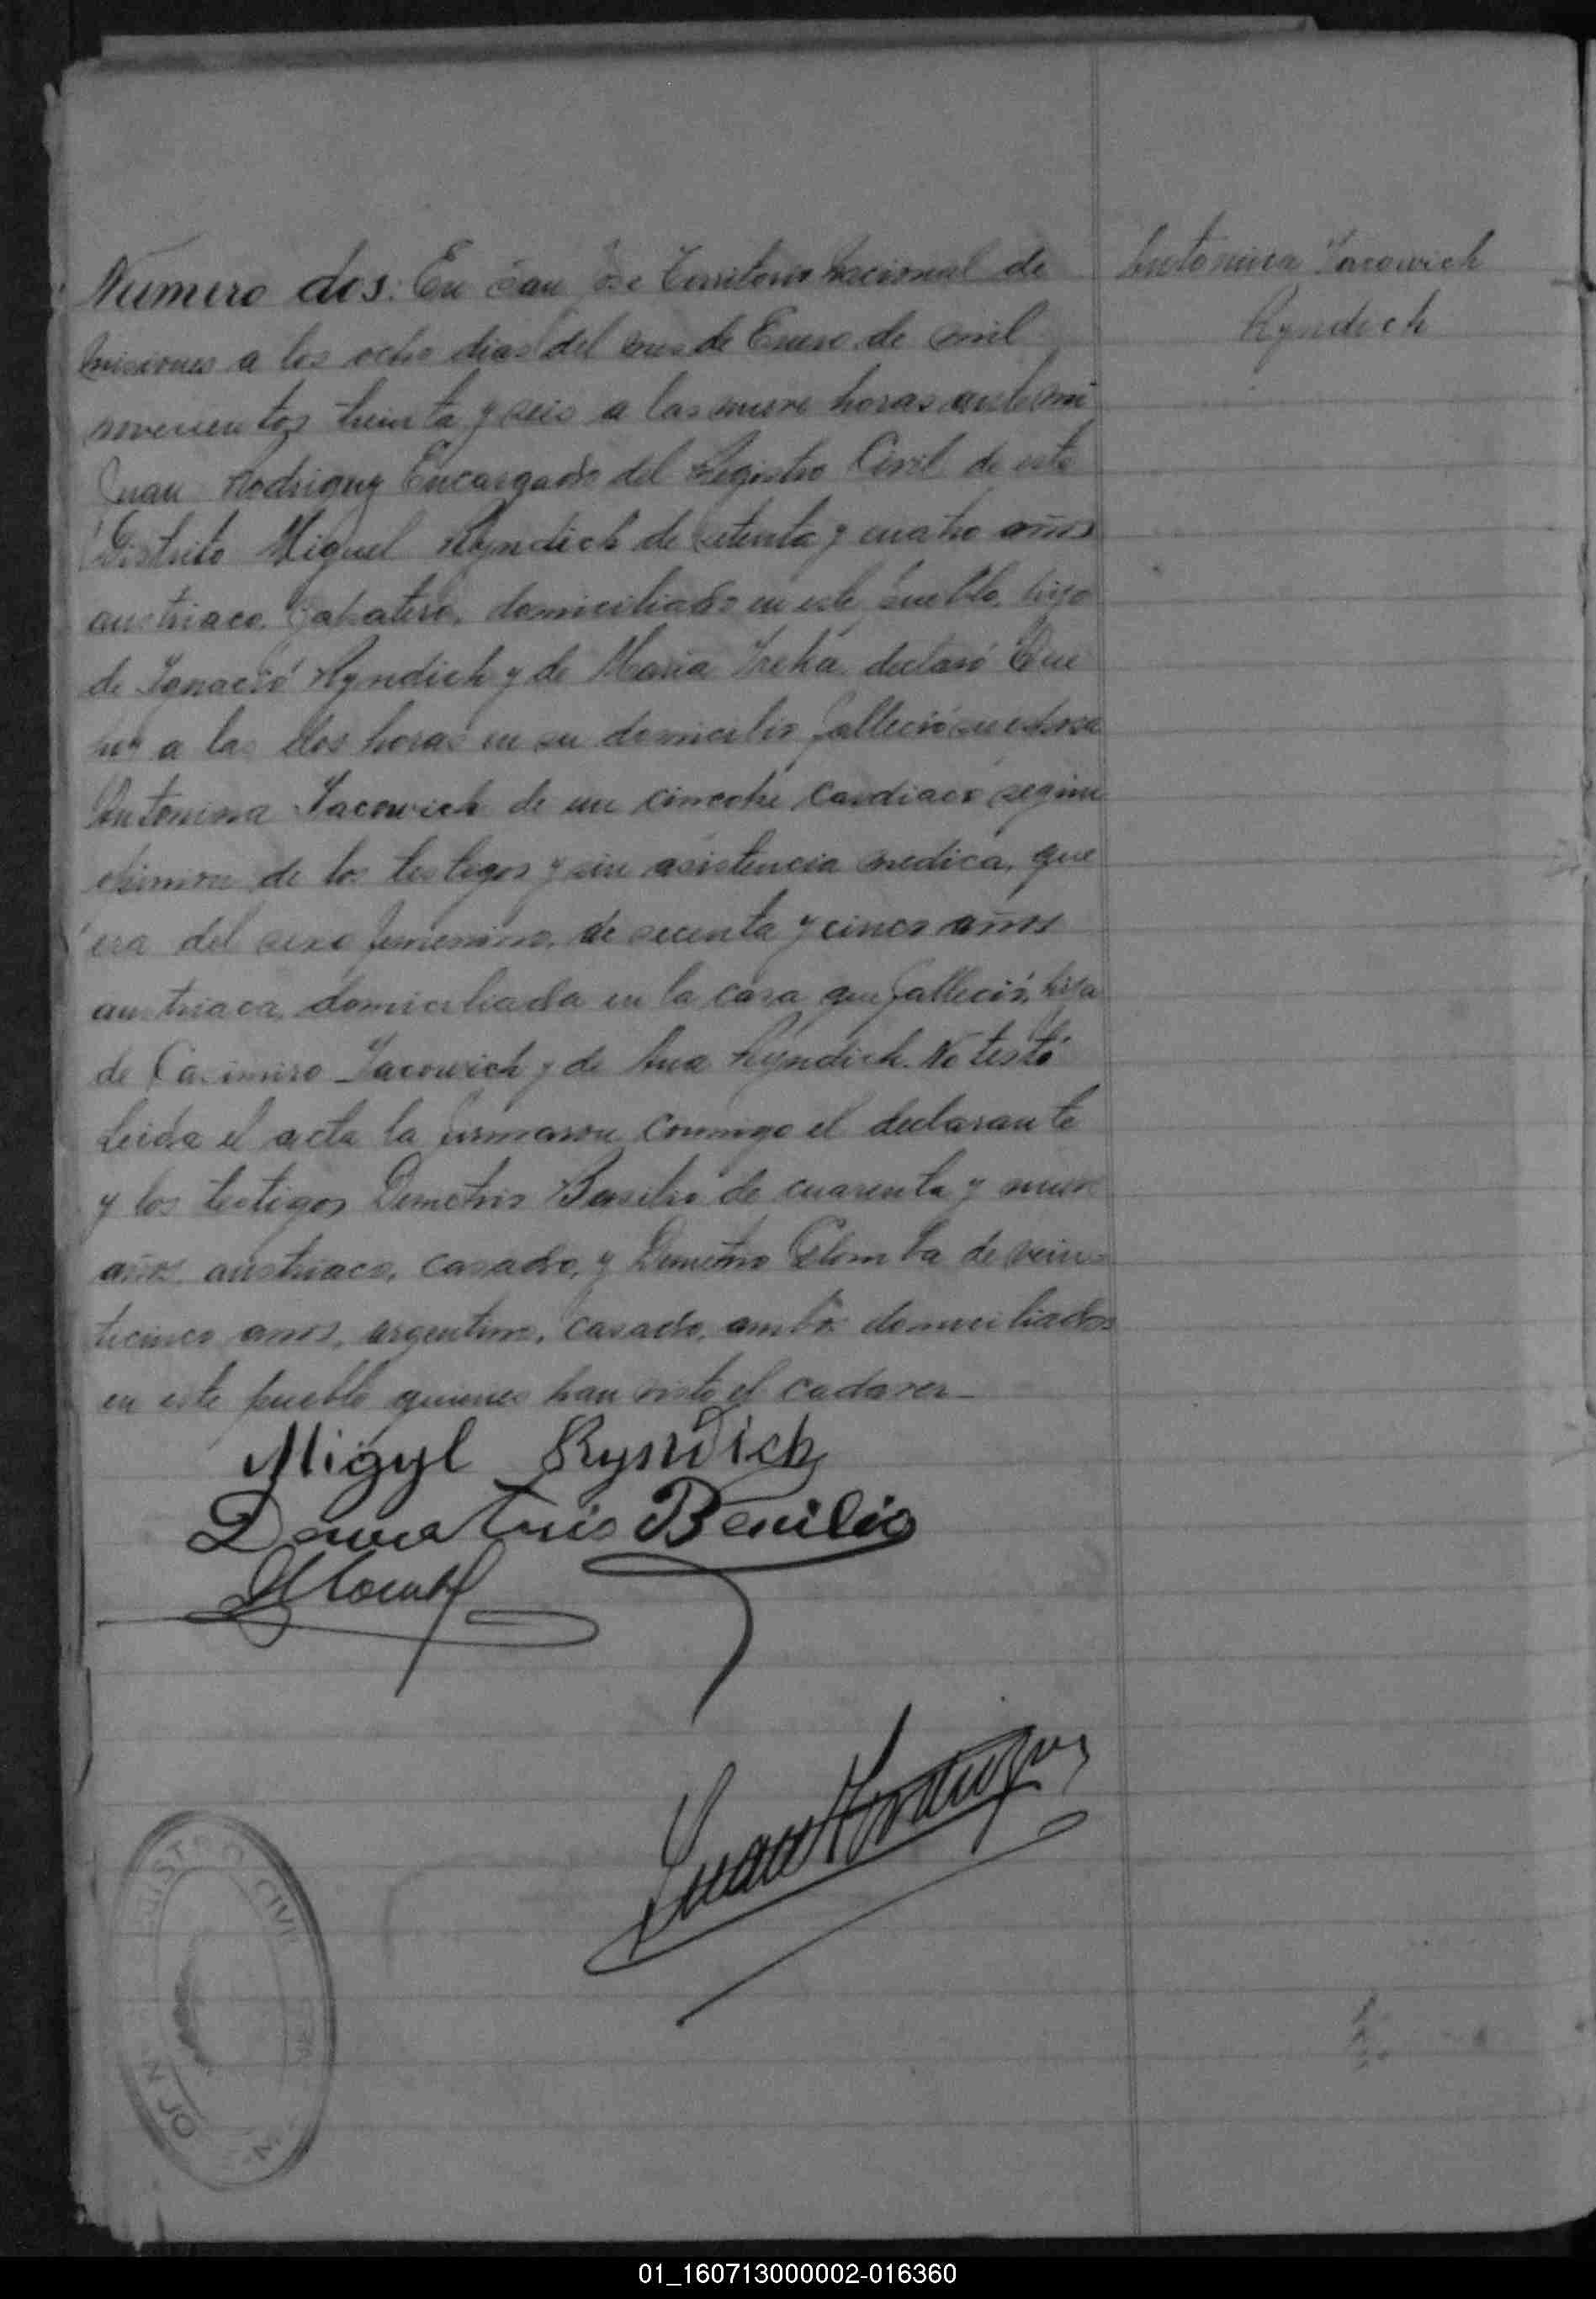 Antonina Jacowich
Ryndich
Numero dos: En San José Territorio Nacional de
Misiones a los ocho dias del mes de Enero de mil
novecientos treinta y seis a las nueve horas ante mi
Juan Rodriguez Encargado del Registro Civil de este
Distrito Miguel Ryndich de setenta y cuatro años
austriaco, zapatero, domiciliado en este pueblo, hijo
de Ignacio Ryndich y de Maria declaró Que
hoy a las dos horas en su domicilio falleció su esposa
Antonina Jacowich de un cincope cardiaco segun
de los testigos y sin asistencia medica, que
era del sexo femenino, de secenta y cinco años
austriaca, domiciliada en la casa que falleció, hija
de Casimiro Jacowich y de Ana Ryndich. No testó
Leida el acta la firmaron conmigo el declarante
y los testigos Demetrio Basilio de cuarenta y nueve
años austriaco, casado, y Demetrio de vein-
ticinco años, argentino, casado, ambos domiciliados
en este pueblo quienes han visto el cadaver-
Migyl Ryndich
Demetrio Basilio
Juan Rodriguez
REGISTRO CIVIL
01_160713000002-016360